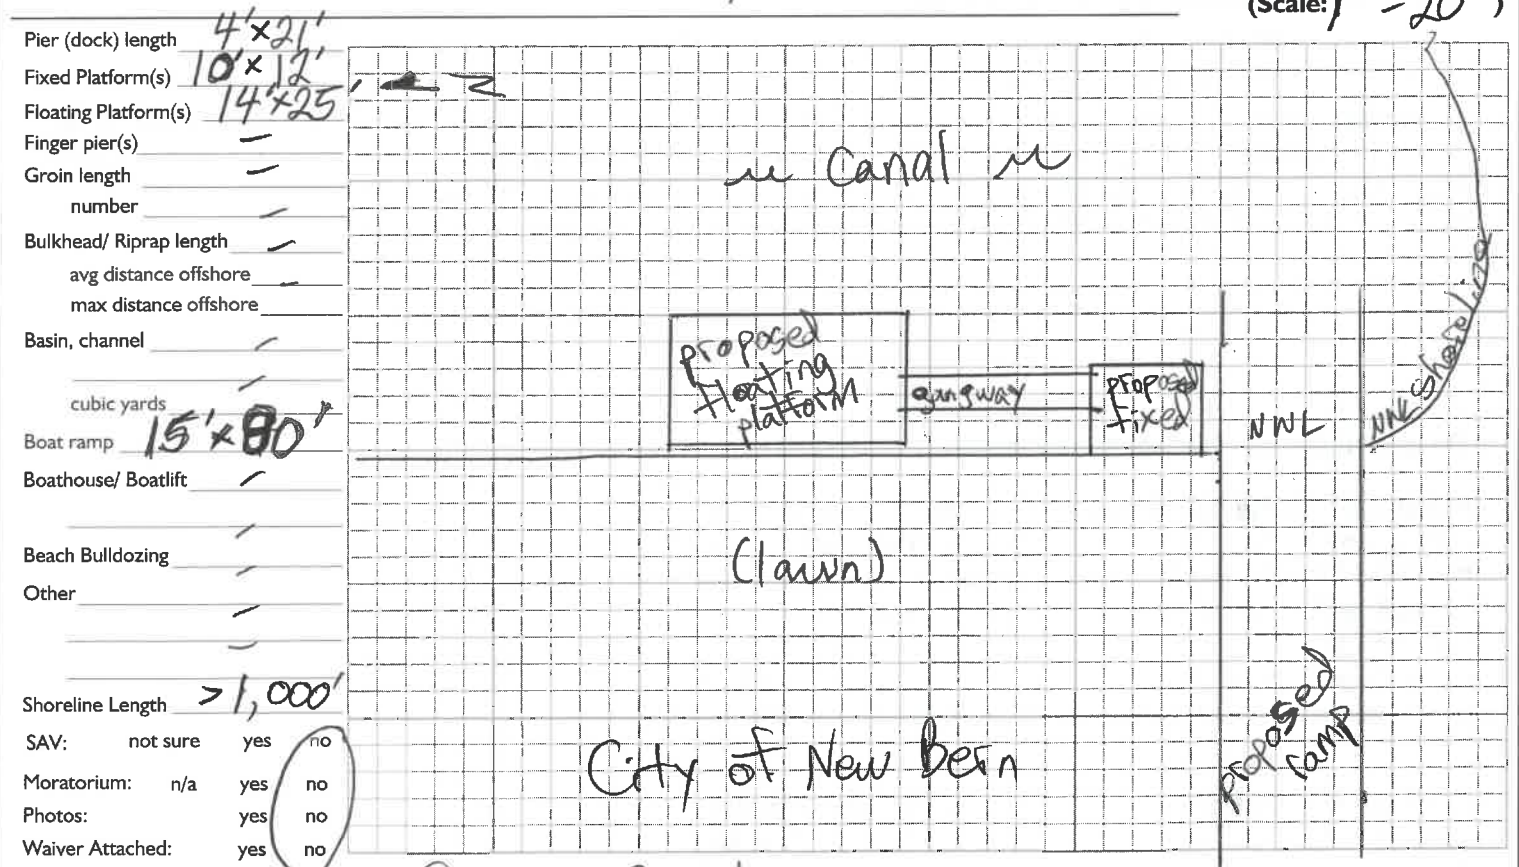 (Scale: 1" = 20')
Pier (dock) length 4'×21'
Fixed Platform(s) 10'×12'
Floating Platform(s) 14'×25'
Finger pier(s) —
Groin length —
number —
Bulkhead/ Riprap length —
avg distance offshore —
max distance offshore
Basin, channel —
—
cubic yards
Boat ramp 15'×80'
Boathouse/ Boatlift —
—
Beach Bulldozing
—
Other
—
—
Shoreline Length >1,000'
SAV: not sure yes no
Moratorium: n/a yes no
Photos: yes no
Waiver Attached: yes no
← Z
Canal
proposed
floating
platform
gangway
proposed
fixed
NWL
NWL shoreline
(lawn)
City of New Bern
proposed
ramp